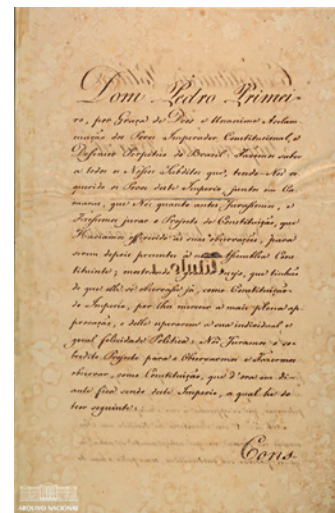 Dom Pedro Primei-
ro, por Graça de Deos e Unanime Acclam-
mação dos Povos Imperador Constitucional, e
Defensor Perpétuo do Brazil: Fazemos saber
a todos os Nossos Subditos que, tendo-Nos re
querido os Povos deste Imperio, juntos em Ca-
maras, que Nós quanto antes Jurassemos, e
Fizessemos jurar o Projecto de Constituição, que
Haviamos offerecido ás suas observações, para
serem depois presentes á nova Assembléa Cons-
tituinte; mostrando o desejo, que tinhão
de que elle se observasse já, como Constituição
do Imperio, por lhes merecer a mais plena ap-
provação, e delle esperarem a sua individual, e
geral felicidade Politica: Nós Juramos o so-
bredito Projecto para o Observarmos e Fazermos
observar, como Constituição, que d'ora em di-
ante fica sendo deste Imperio, a qual he do
teor seguinte:
Cons-
ARQUIVO NACIONAL